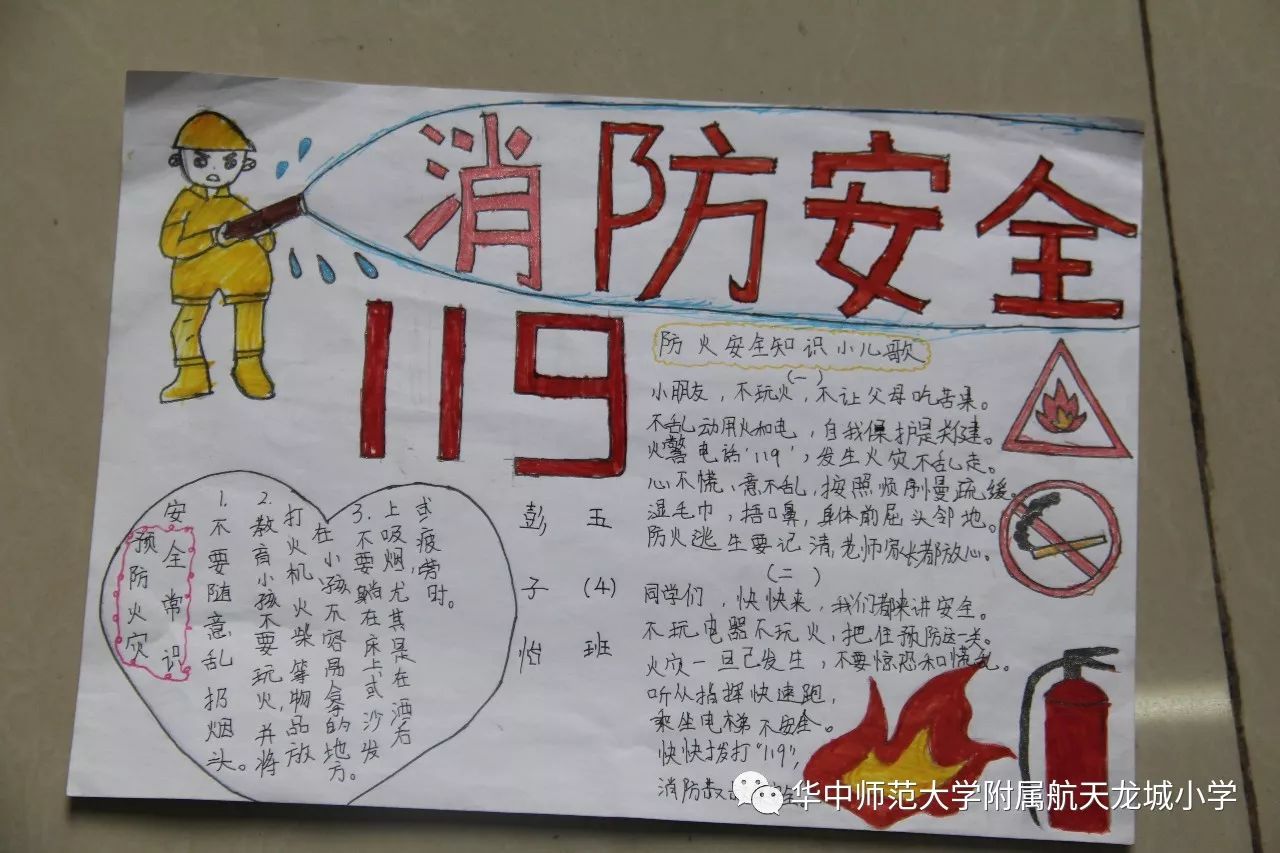 消防安全
119
防火安全知识小儿歌
(一)
小朋友，不玩火，不让父母吃苦果。
不乱动用火和电，自我保护是关键。
火警电话"119"，发生火灾不乱走。
心不慌，意不乱，按照顺序慢疏缓。
湿毛巾，捂口鼻，身体前屈头邻地。
防火逃生要记清，老师家长都放心。
(二)
同学们，快快来，我们都来讲安全。
不玩电器不玩火，把住预防这一关。
火灾一旦已发生，不要惊恐和慌乱。
听从指挥快速跑，
乘坐电梯不安全。
快快拨打"119"，
消防救
预防火灾
安全常识
1.不要随意乱扔烟头。
2.教育小孩不要玩火，并将
打火机、火柴等物品放
在小孩不容易拿的地方。
3.不要躺在床上或沙发
上吸烟，尤其是在酒后
或疲劳时。
彭子怡
五(4)班
华中师范大学附属航天龙城小学